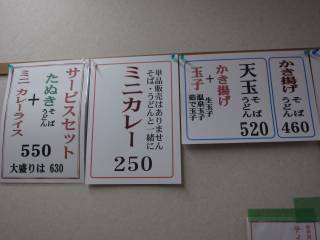 かき揚げ
そば
うどん
460
天玉
そば
うどん
520
かき揚げ
+
玉子
生玉子
温泉玉子
茹で玉子
単品販売はありません
そば・うどんと一緒に
ミニカレー
250
サービスセット
たぬき
そば
うどん
+
ミニカレーライス
550
大盛りは 630